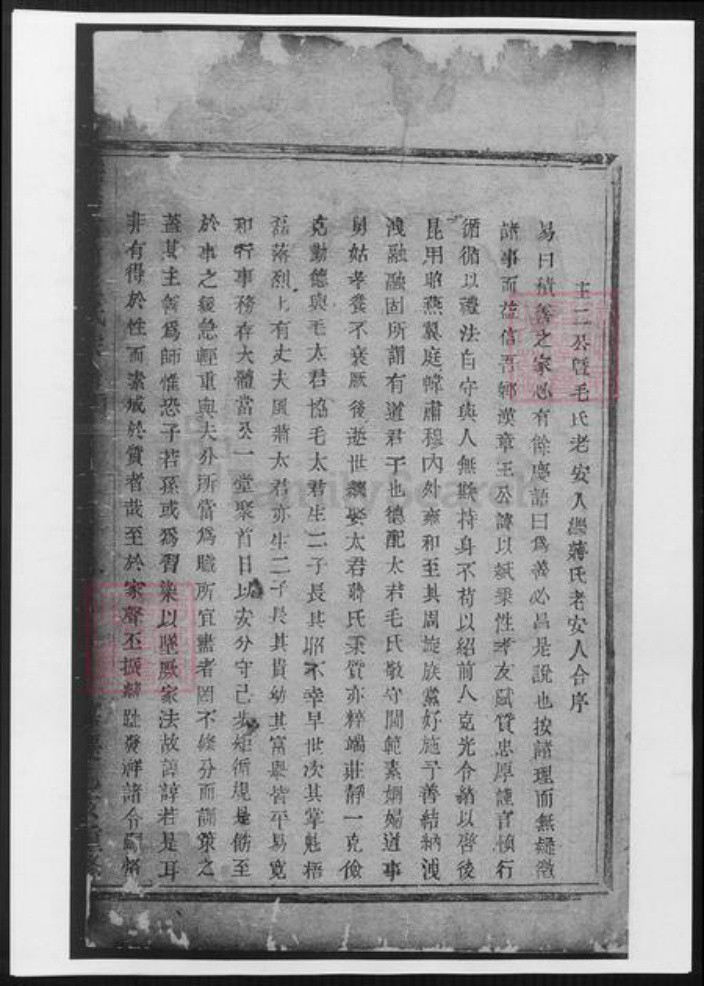 王二公暨毛氏老安人繼蔣氏老安人合序
易曰積善之家必有餘慶語曰爲善必昌是說也按諸理而無疑徵
諸事而益信吾鄉漢章王公諱以斌秉性孝友賦質忠厚謹言愼行
循循以禮法自守與人無欺持身不苟以紹前人克光令緒以啓後
昆用昭燕翼庭幃肅穆內外雍和至其周旋族黨好施予善結納洩
洩融融固所謂有道君子也德配太君毛氏敬守閫範素嫻婦道事
舅姑孝養不衰厥後逝世繼娶太君蔣氏秉質亦粹端莊靜一克儉
克勤德與毛太君協毛太君生二子長其昭不幸早世次其掌魁梧
磊落烈上有丈夫風蔣太君亦生二子長其貴幼其富舉皆平易寬
和行事務存大體當公一堂聚首日以安分守己步矩循規是飭至
於事之緩急輕重與夫分所當爲職所宜盡者罔不條分而訓策之
蓋其主善爲師惟恐子若孫或爲習染以墜厥家法故諄諄若是耳
非有得於性而素成於質者哉至於家聲丕振 趾發祥諸令嗣